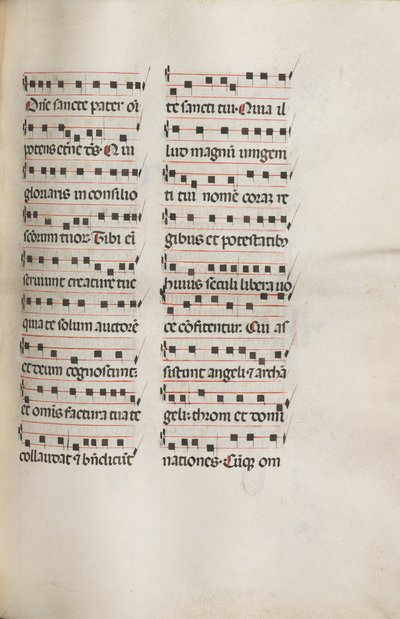 Dñe sancte pater oĩ
potens etñe ds̃. Qui
gloriaris in consilio
scõrum tuoꝝ. Tibi eĩ
seruiunt creature tue
quia te solum auctorẽ
et deum cognoscunt:
et omis factura tua te
collaudat ⁊ bñdicũt
te sancti tui. Quia il
lud magnũ unigem
ti tui nomẽ coraꝫ re
gibus et potestatibꝫ
huius seculi libera uo
ce cõfitentur. Cui as
sistunt angeli ⁊ archã
geli: throni et domi
nationes. Cũqꝫ om